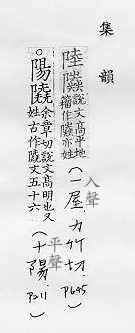 集韻
陸 說文高平地
籀作 亦姓
(一屋 力竹切 P645)
入聲
○陽 余章切說文高明也又
姓古作 文五十六
平聲
(十陽 P211)